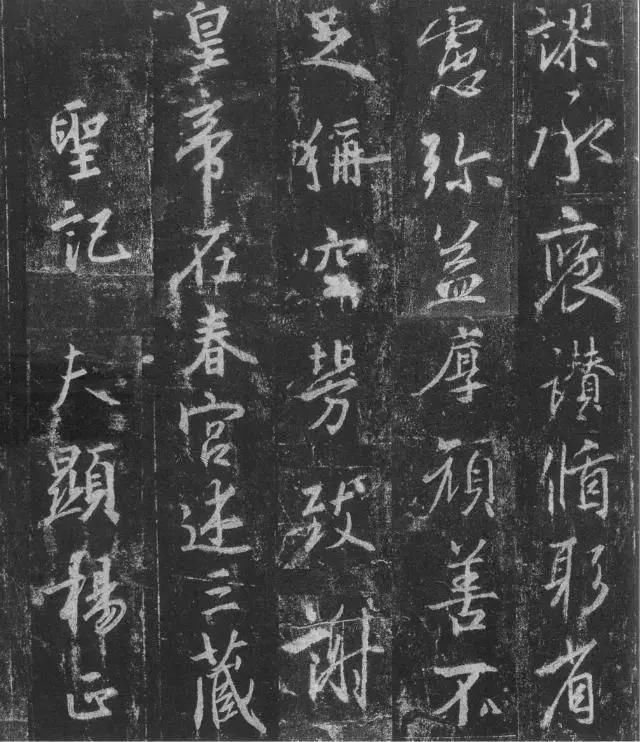 謬承褒讚循躬省
慮弥益厚顔善不
足稱空勞致謝
皇帝在春宮述三藏
聖記 夫顯揚正